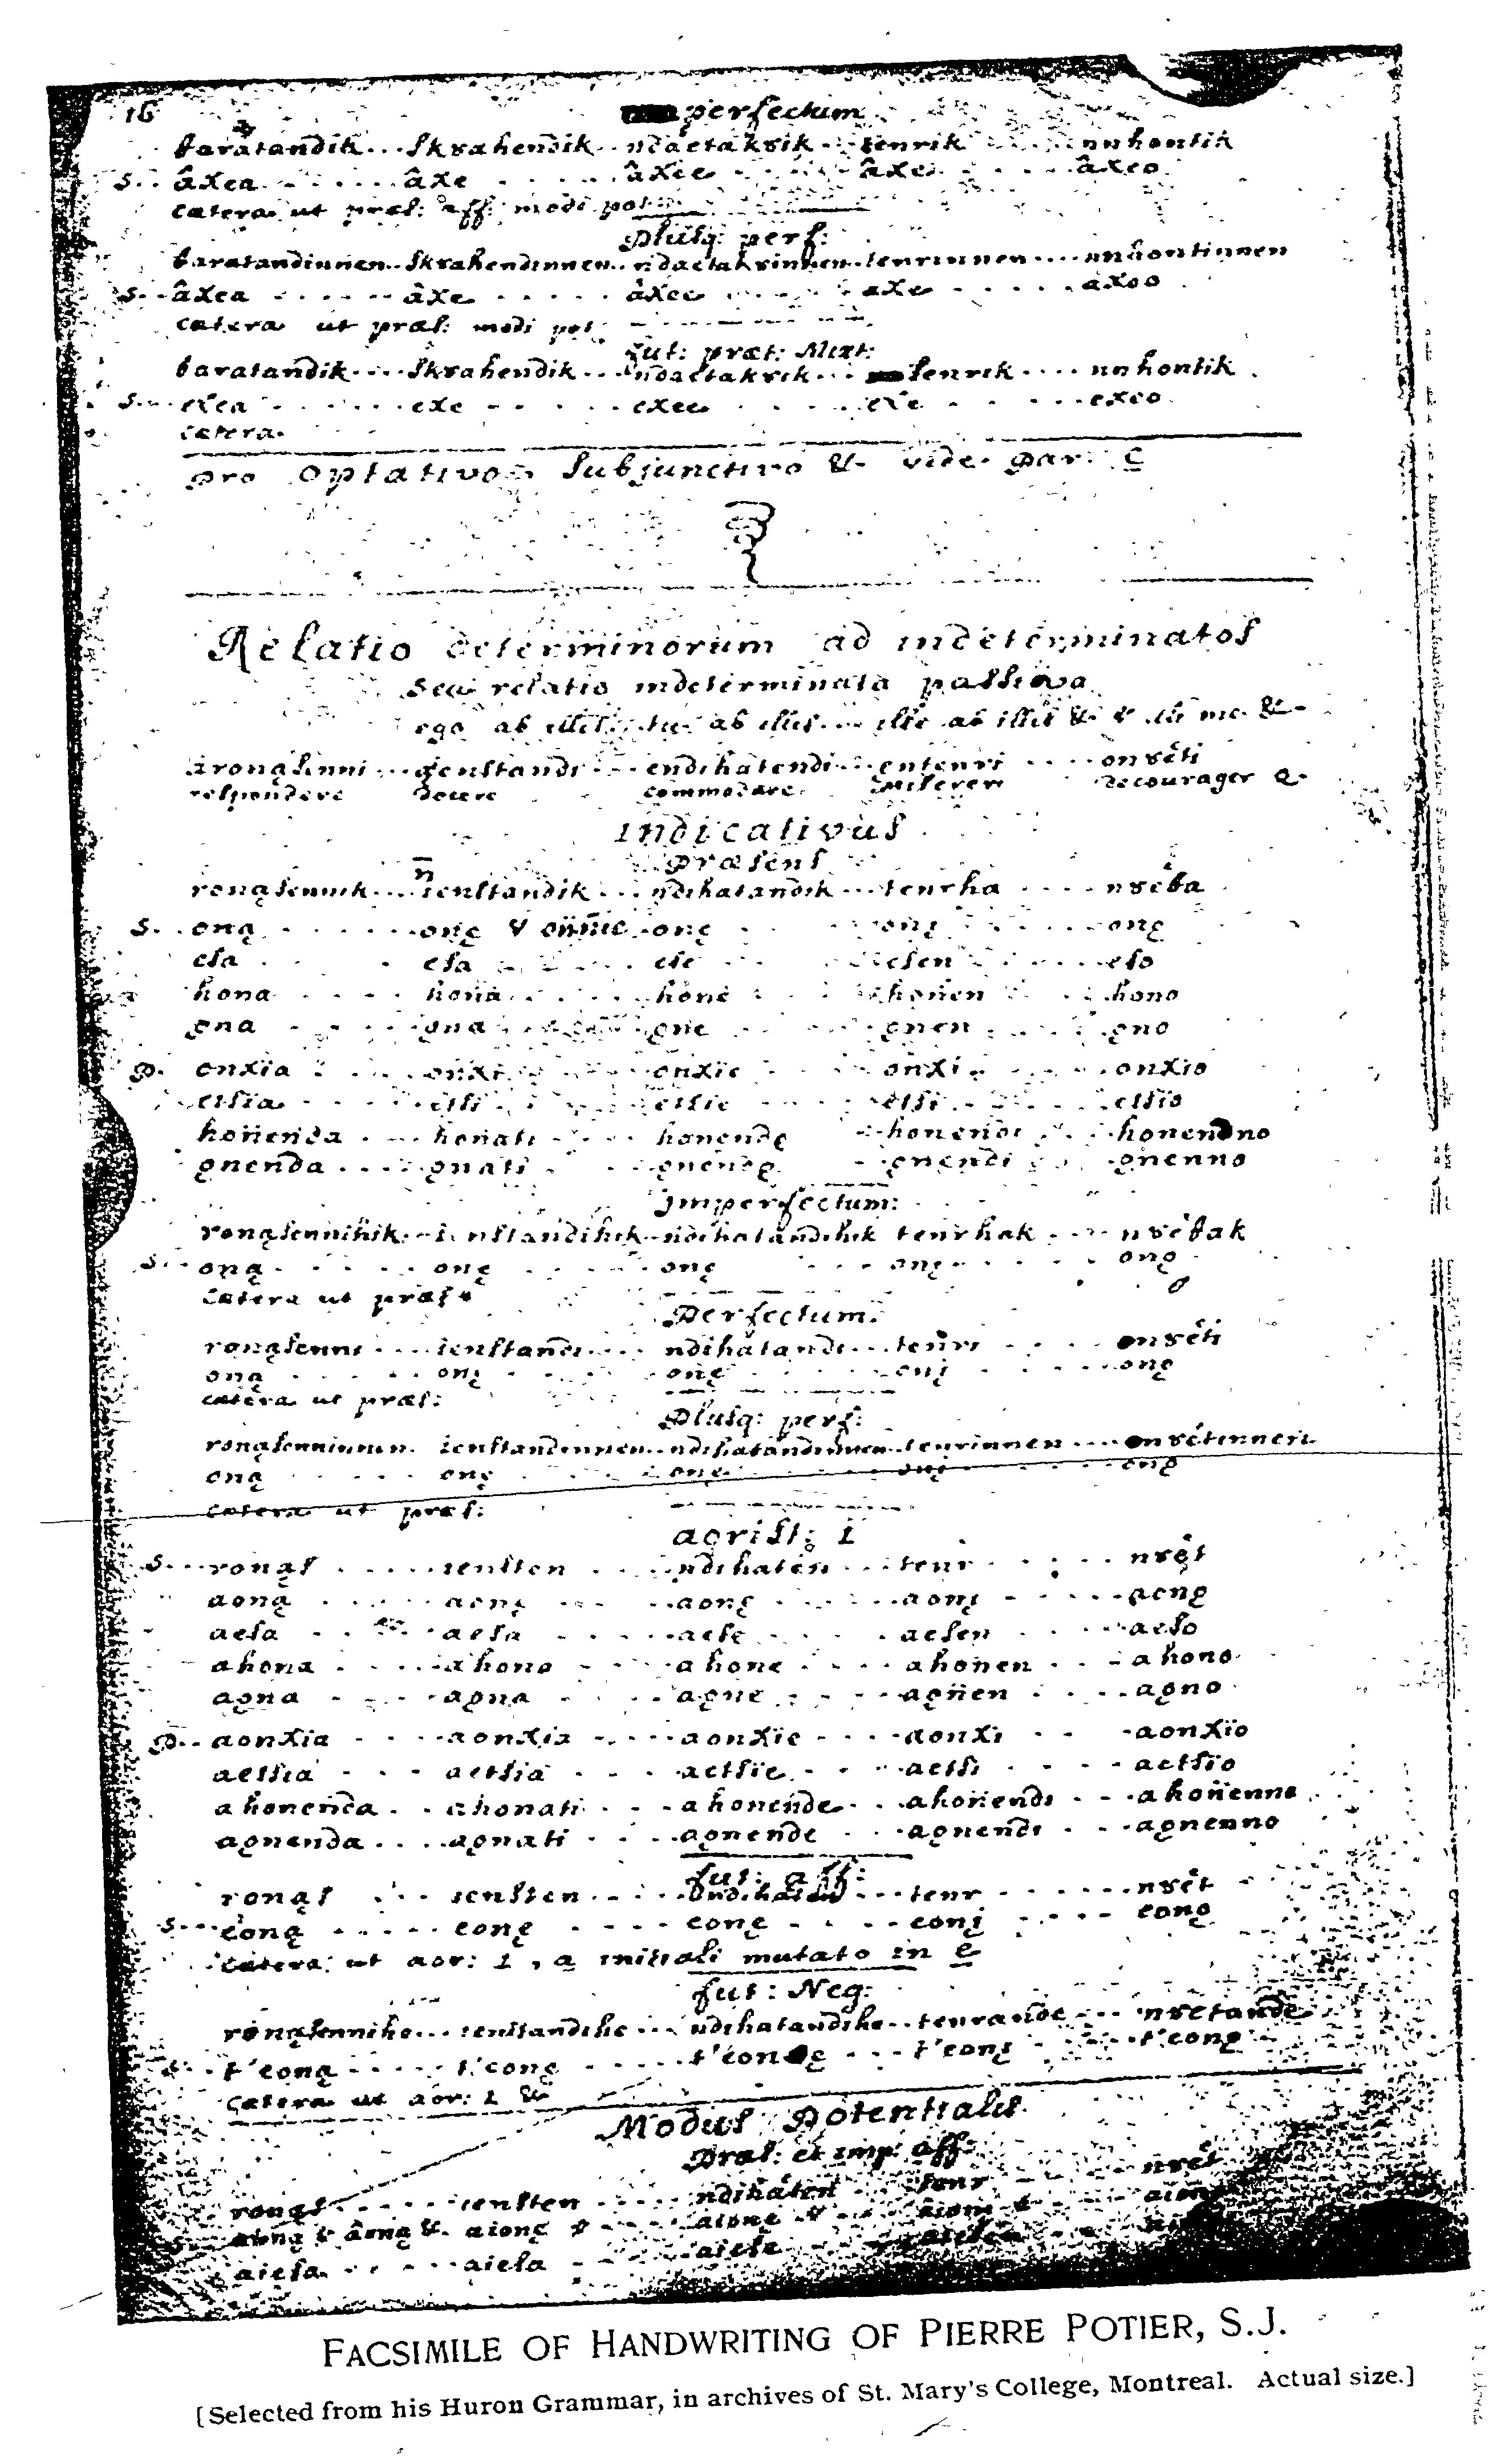 16
perfectum
baratandik... skȣahendik.. ndaetakȣik.. tenrik ..... nnhontik
S.. âxea ...... âxe ...... âxee ...... âxe ...... âxeo
cætera ut præs: aff: modi pot:
Plusq: perf:
baratandinnen.. skȣahendinnen.. ndaetakȣinnen.. tenrinnen .... nnhontinnen
S.. âxea ...... âxe ...... âxee ...... axe ...... axeo
cætera ut præs: modi pot:
fut: præt: Mixt:
baratandik.... skȣahendik... ndaetakȣik... tenrik .... nnhontik
S... exea ...... exe ...... exee ...... exe ...... exeo
cætera
Pro Optativo, Subjunctivo &. vide. Par: C
Relatio determinorum ad indeterminatos
seu relatio indeterminata passiva
ego ab illis... tu ab illis... ille ab illis &.
arongsenni... ienstandi... endihatendi... entenri .... onȣêti
respondere docere commodare. misereri decourager
Indicativus
Præsens
n
ienstandik... ndihatandik... tenrha .... nȣêta
S.. oną ...... onę ...... onę ...... onę
esa ... esa ... ese ... esen ... eso
hona .... hona .... hone .... honen .... hono
ona .... ona .... one .... onen .... ono
P. onxia .... onxi .... onxie .... onxi .... onxio
etsia .... etsi .... etsie .... etsi .... etsio
honenda .... honati .... honende .... honendi .... honendno
onenda .... onati .... onende .... onendi .... onenno
Imperfectum:
ienstandihik.. ndihatandihik tenrhak .... nȣêtak
S.. oną ...... onę ...... onę ...... onę ...... ono
cætera ut præs
Perfectum:
ienstandi.... ndihatandi... tenri .... onȣêti
oną ...... onę ...... onę ...... onį ...... onę
cætera ut præs:
Plusq: perf:
ienstandinnen.. ndihatandinnen.. tenrinnen .... onȣêtinnen
oną ...... onę ...... onę ...... onį ...... onę
cætera ut præs:
aorist: 1
S... rongs .... iensten .... ndihaten ... tenr .... nȣêt
aoną .... aonę .... aonę .... aonį .... aonę
aesa .... aesa .... aese .... aesen .... aeso
ahona .... ahona .... ahone .... ahonen .... ahono
aona .... aona .... aone .... aonen .... aono
P.. aonxia .... aonxia .... aonxie .... aonxi .... aonxio
aetsia ... aetsia ... aetsie ... aetsi ... aetsio
ahonenda .. ahonati .. ahonende .. ahonendi .. ahonenno
aonenda .... aonati .... aonende .... aonendi .... aonenno
fut: aff:
rongs ... iensten .... ndihaten ... tenr .... nȣêt
S... eoną .... eonę .... eonę .... eonį .... eono
Cætera: ut aor: 1, a initiali mutato in e
fut: Neg:
ienstandihe ... ndihatandihe.. tenrande ... nȣetande
S.. t'eoną .... t'eonę .... t'eonę ... t'eonį .... t'eonę
cætera ut aor: 1 &
Modus Potentialis
Præs: et imp: aff:
rongs .... iensten .... ndihaten ... tenr .... nȣêt
aiesa .... aiesa .... aiese
FACSIMILE OF HANDWRITING OF PIERRE POTIER, S.J.
[Selected from his Huron Grammar, in archives of St. Mary's College, Montreal. Actual size.]